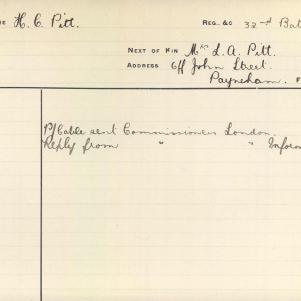 H. C. Pitt. REG. &C 32nd Bat
NEXT OF KIN Mrs L. A. Pitt.
ADDRESS Off John Street.
Payneham.
Cable sent Commissioner London.
Reply from " " Infor